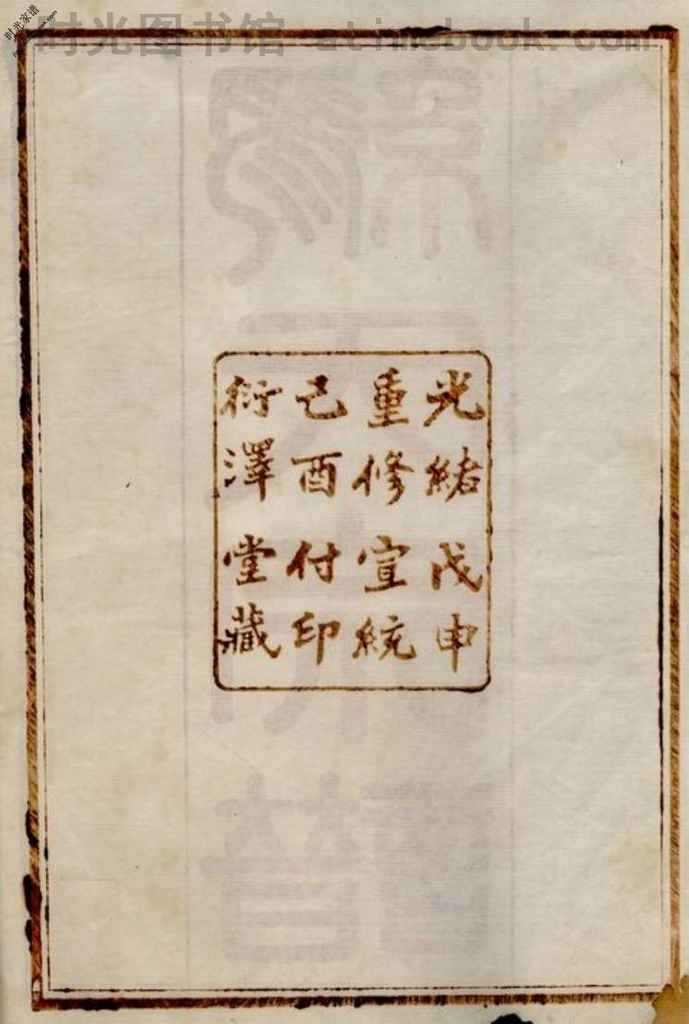 时光图书馆 atimebook.com
时光家谱
光緒戊申
重修宣統
己酉付印
衍澤堂藏